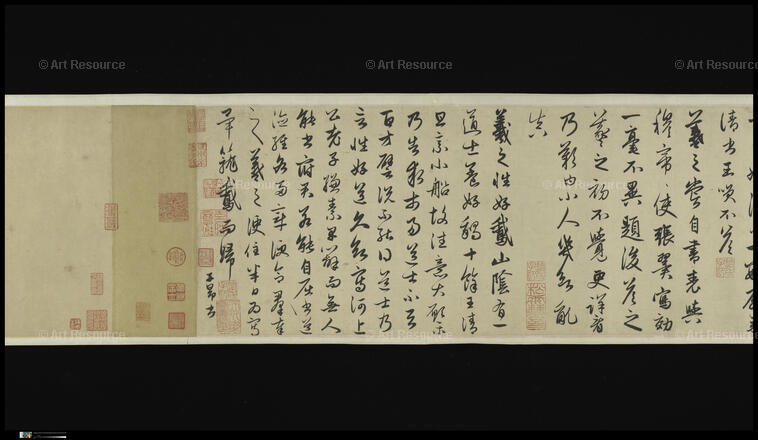 請書王笑不答
羲之嘗自書表與
穆帝〻使張翼寫効
一毫不異題後答之
羲之初不覺更詳看
乃歎曰小人幾欲亂
真
羲之性好鵞山陰有一
道士養好鵞十餘王清
旦乘小船故往意大願樂
乃告求市易道士不與
百方譬說不能得道士乃
言性好道久欲寫河上
公老子縑素早辦而無人
能書府君若能自屈書道
德經各兩章便合羣奉
之羲之便住半日為寫
畢籠鵞而歸
子昂書
© Art Resource
© Art Resource
© Art Resource
© Art Resource
© Art Resource
© Art Resource
© Art Resource
© Art Resource
© Art Resource